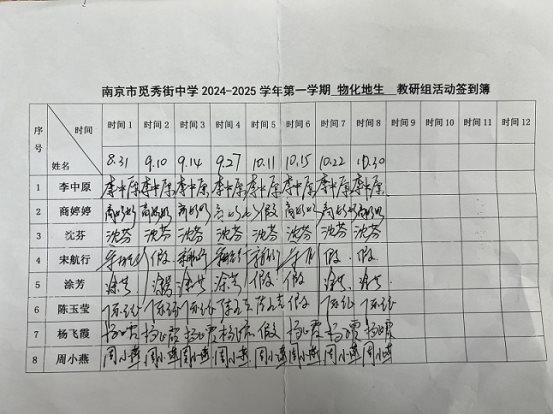 南京市觅秀街中学2024-2025学年第一学期 物化地生 教研组活动签到簿
序号 时间 姓名 时间1 时间2 时间3 时间4 时间5 时间6 时间7 时间8 时间9 时间10 时间11 时间12
8.31 9.10 9.14 9.27 10.11 10.15 10.22 10.30
1 李中原 李中原 李中原 李中原 李中原 李中原 李中原 李中原 李中原
2 商婷婷 商婷婷 商婷婷 商婷婷 商婷婷 假 商婷婷 商婷婷 商婷婷
3 沈芬 沈芬 沈芬 沈芬 沈芬 沈芬 沈芬 沈芬 沈芬
4 宋航行 宋航行 假 宋航行 宋航行 宋航行 假 假
5 涂芳 涂芳 涂芳 涂芳 涂芳 假 假 涂芳 涂芳
6 陈玉莹 陈玉莹 陈玉莹 陈玉莹 陈玉莹 陈玉莹 假 陈玉莹 陈玉莹
7 杨飞霞 杨飞霞 杨飞霞 杨飞霞 杨飞霞 假 杨飞霞 杨飞霞 杨飞霞
8 周小燕 周小燕 周小燕 周小燕 周小燕 周小燕 周小燕 周小燕 周小燕